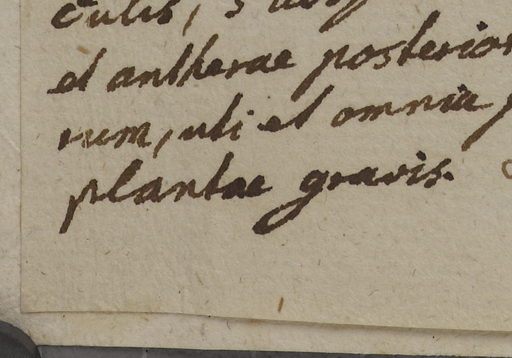 culis,
et antherae posterior
rum, uti et omnia
plantae gravis.